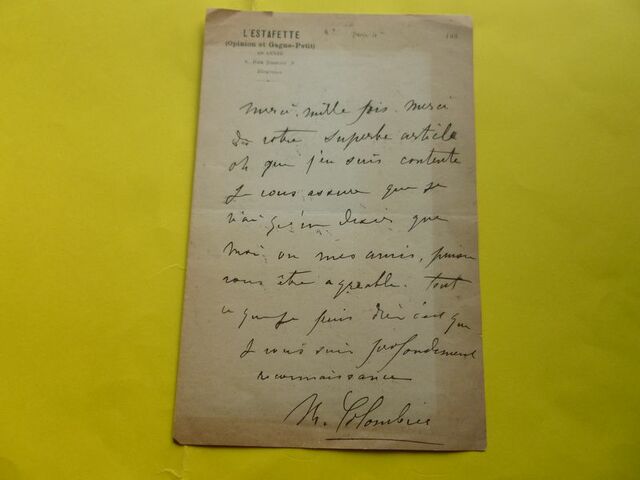 L'ESTAFETTE
(Opinion et Gagne-Petit)
Paris, le
188
Merci, mille fois merci
de votre superbe article
oh que j'en suis contente
Je vous assure que je
n'ai qu'un désir que
moi ou mes amis, puisse
vous être agréable. tout
ce que je puis dire c'est que
je vous suis profondement
reconnaissance
M. Colombier